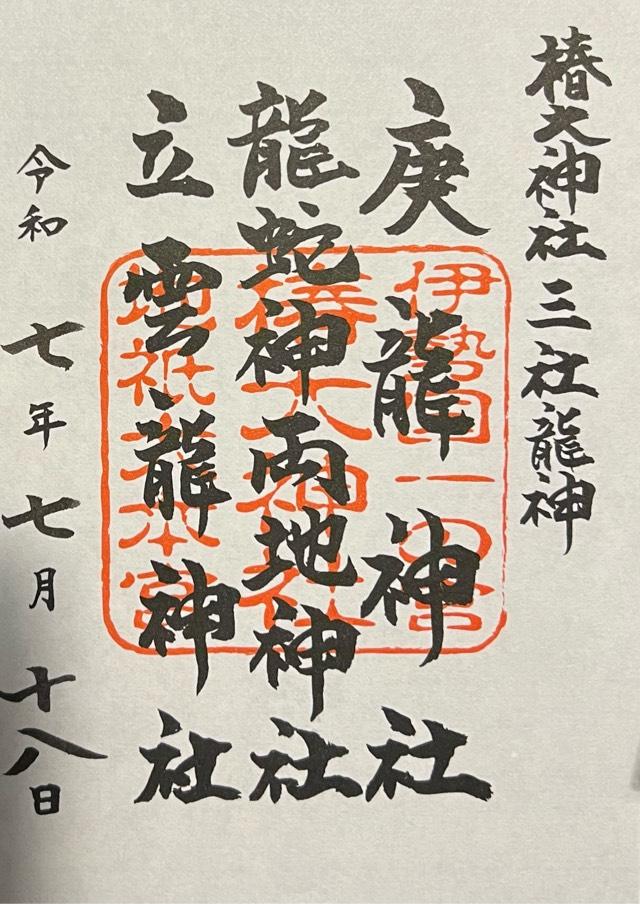 椿大神社三社龍神
庚龍神社
龍蛇神両地神社
立雲龍神社
令和七年七月十八日
伊勢国一の宮
椿大神社
地祇大本宮